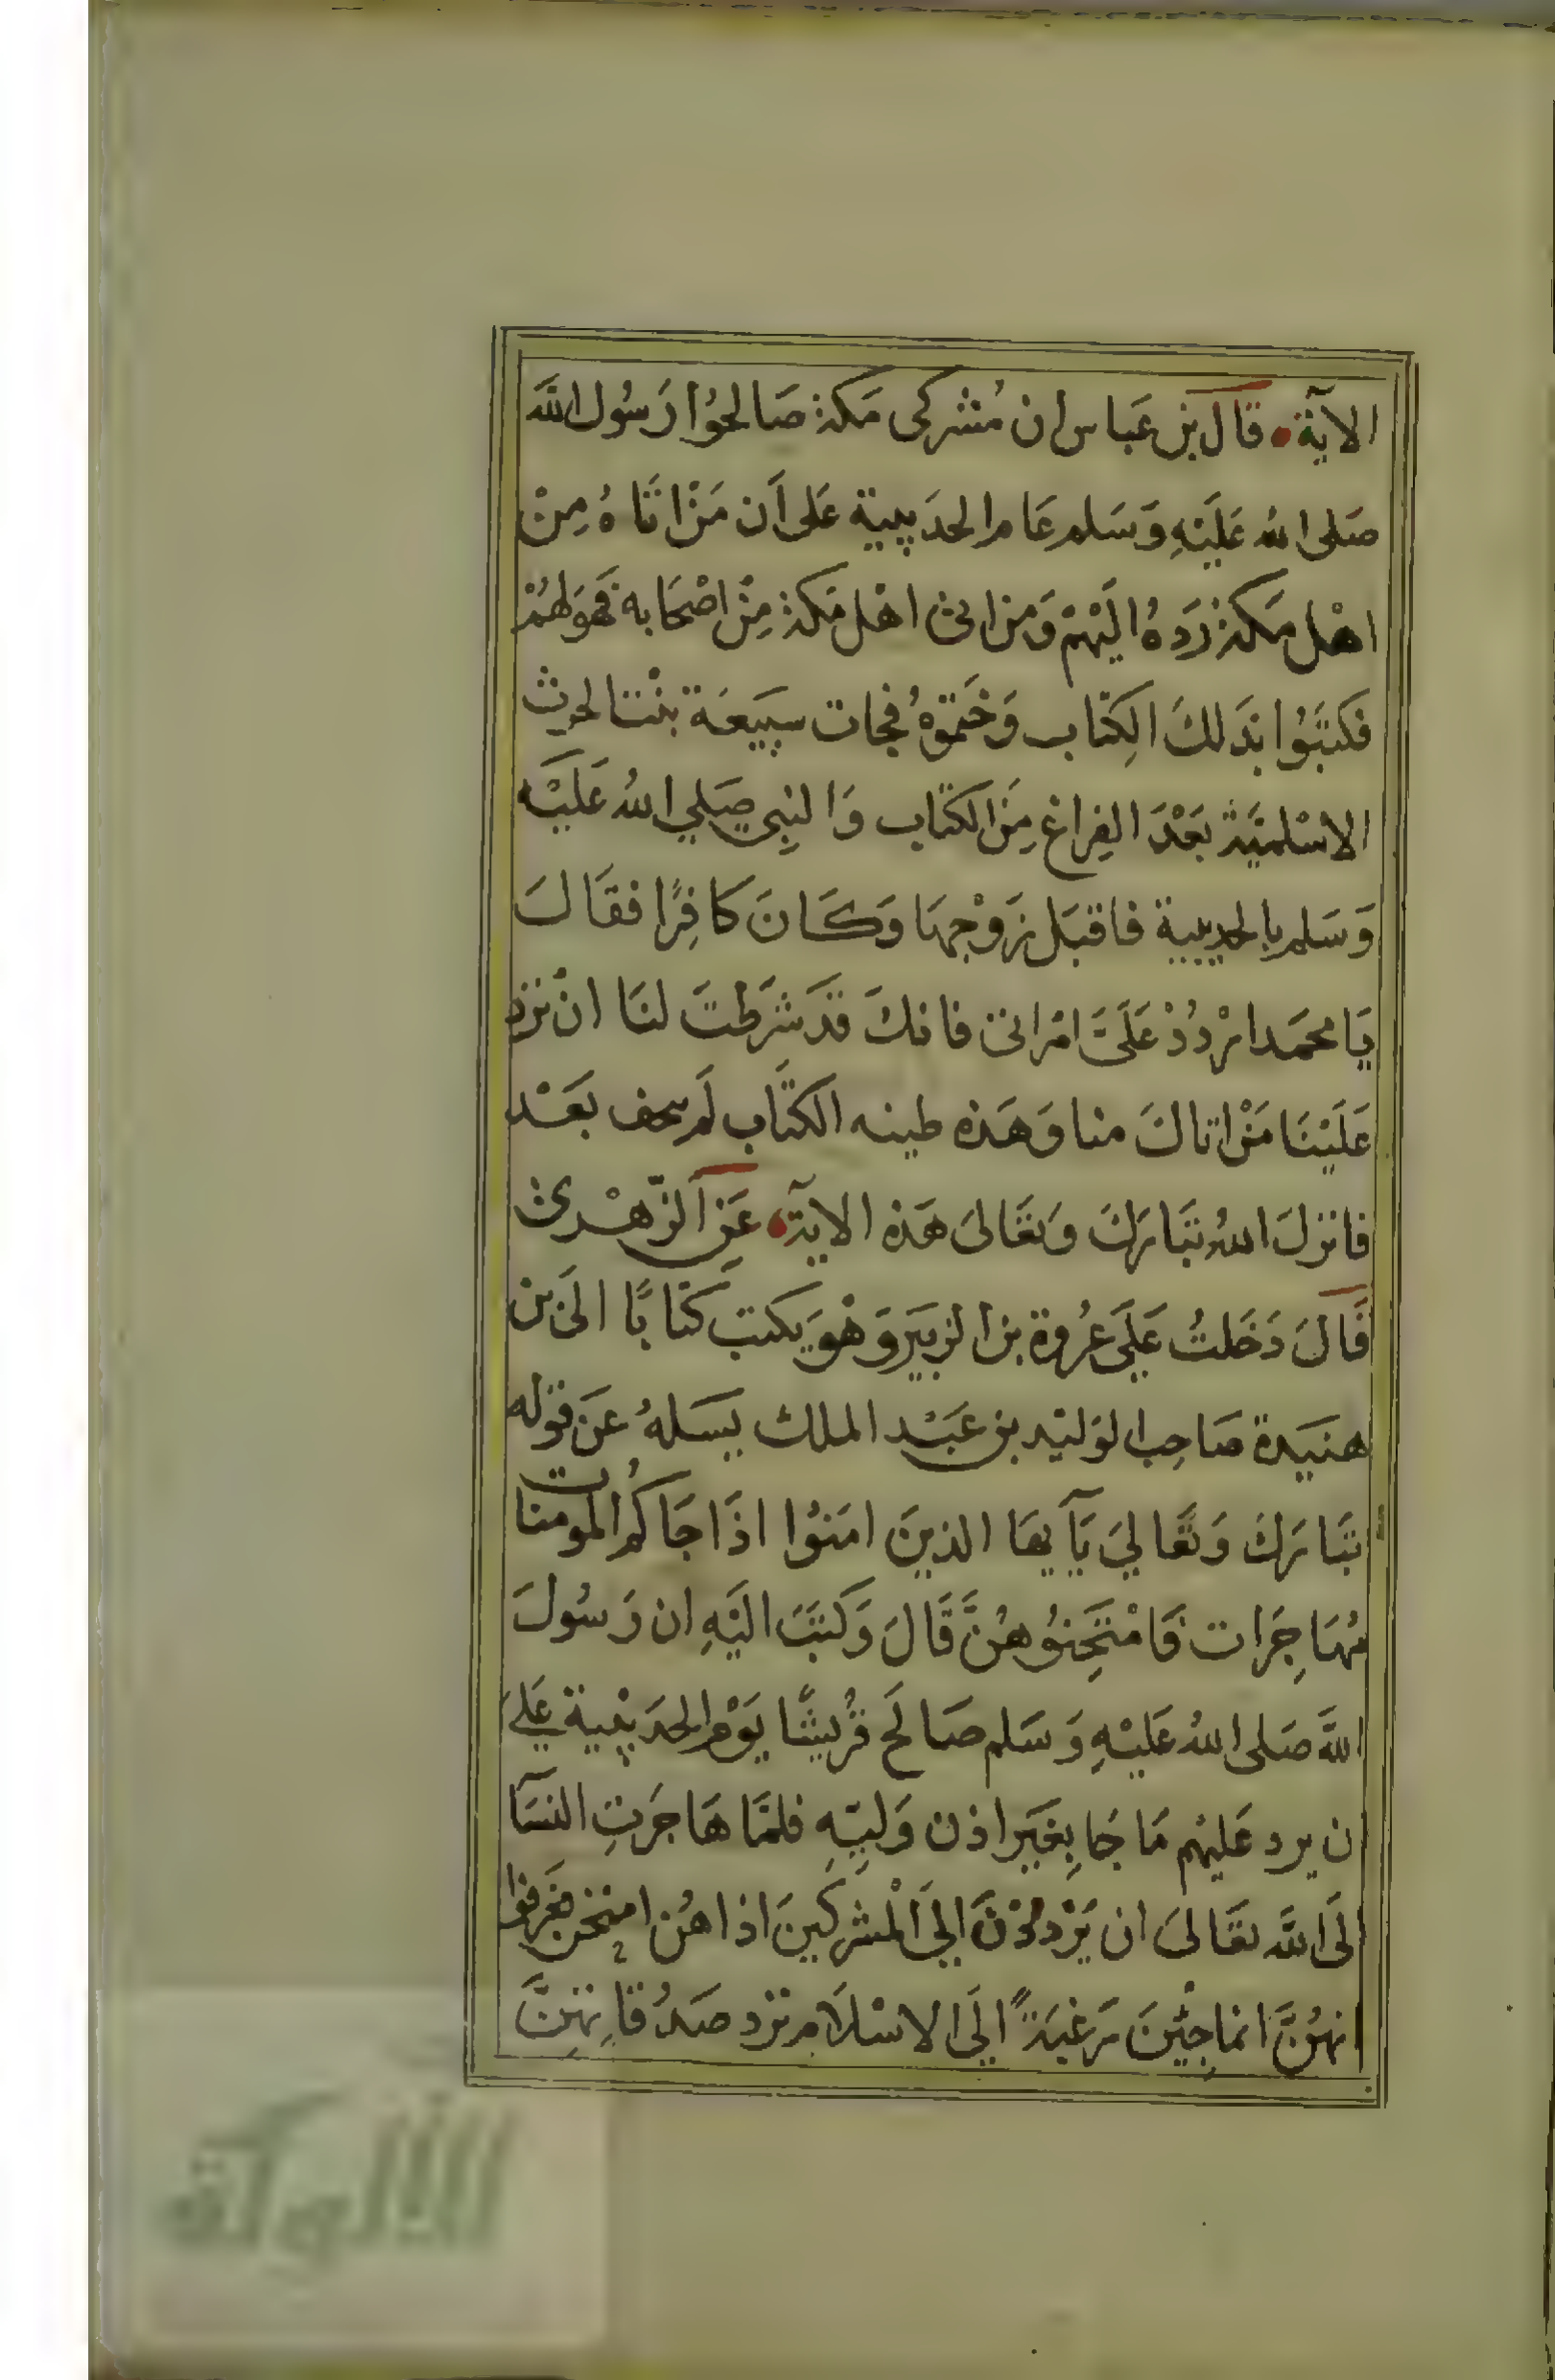 الآية قال بن عباس ان مُشركى مَكة صَالحوُا رَسُول الله
صَلى الله عَلَيْهِ وَسَلم عَام الحدَيبية عَلى اَن مَنْ اتَاهُ مِنْ
اهْل مَكة رَدهُ اليَهْم وَمن اتى اهْل مَكة مِنْ اصْحَابه فَهوَ لهُمْ
فكتَبُوا بذَلكَ الِكتاب وَخَتموُهُ فجات سبَيعَة بنْت الحرث
الاسْلميَة بعْدَ الفِراغ مِنَ الكتاب وَالنبِى صَلي اللهُ عَليْه
وَسَلم بِالحديبية فاقبَل زَوْجهَا وَكَانَ كافِرًا فقَالَ
يَا محمَد ارْدُدْ عَلَىَّ امْراتى فانكَ قدَ شَرَطتَ لنَا انْ نرد
عَلَيْنَا مَنْ اتاكَ منا وَهَذه طينه الكتَاب لَم تحف بعَد
فانزلَ اللهُ تبَارَكَ وَتعَالىَ هَذه الاية عَنِ الزّهْرىِ
قَالَ دَخَلتُ عَلَى عُروة بن الزبَير وَهْوَ يكتبَ كتابًا الىَ بن
هنَيدة صَاحِب الوَليد بن عَبْد الملك يسَلهُ عَن قوْله
تبَارَكَ وَتعَاليَ يَآيهَا الذينَ امَنوُا اذَا جَاكُمُ المومنات
مُهَاجِرَات فَامْتَحِنوُهُنَّ قَالَ وَكتبَ اليَهِ ان رَسُولَ
اللهَ صَلى اللهُ عَليْهِ وَسَلم صَالَح قُريشًا يوَم الحدَيْبية عَلىَ
ان يرد عَليهْم مَا جَا بِغيَر اذن وَليّهِ فلمَّا هَاجَرَتِ النسَآ
ابىَ اللهَ تعَالىَ ان يَرْددُوْنَ اليَ الْمشركينَ اذا هُن امتحن فعَرفوا
انهُنَّ انما جِئْنَ رَغبَةً اليَ الاسْلاَم نرد صَدُقاتهِنَّ
الألوكة